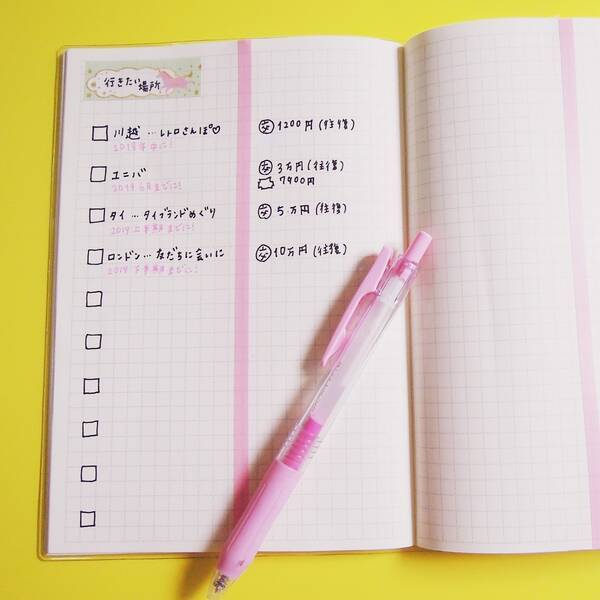 行きたい場所
川越…レトロさんぽ♡
2019年中に!
安 1200円(往復)
ユニバ
2019 6月までに!
安 3万円(往復)
7400円
タイ…タイブランドめぐり
2019 上半期までに!
安 5万円(往復)
ロンドン…友だちに会いに
2019 下半期までに!
安 10万円(往復)